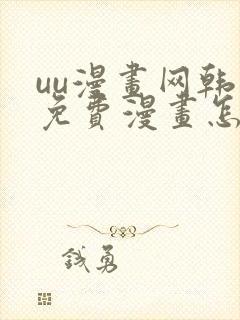 uu漫畫网韩
免費漫畫怎
钱勇